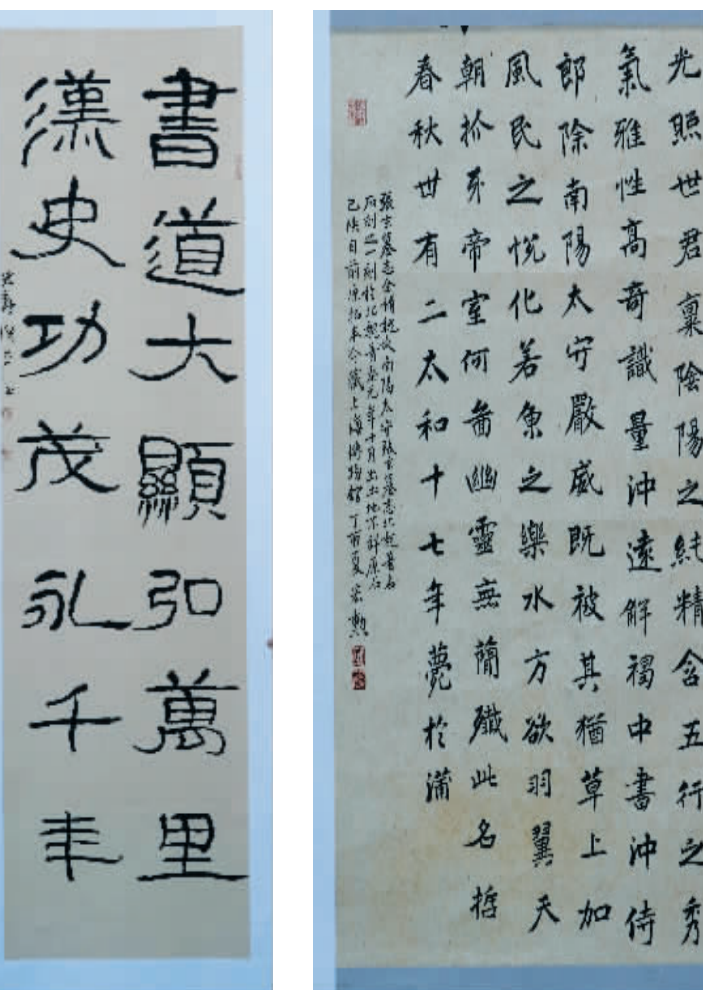 書道大顯弘萬里
漢史功茂永千年
光照世君稟陰陽之純精含五行之秀
氣雅性高奇識量沖遠解褐中書沖侍
郎除南陽太守嚴威既被其猶草上加
風民之悅化若魚之樂水方欲羽翼天
朝抓牙帝室何啚幽靈無簡殲此名哲
春秋卅有二太和十七年薨於蒲
張玄墓志全稱故南陽太守張玄墓志北魏著名
石刻之一刻於北魏普泰元年十月出土地不詳原石
已佚目前原拓本今藏上海博物館 丁酉夏